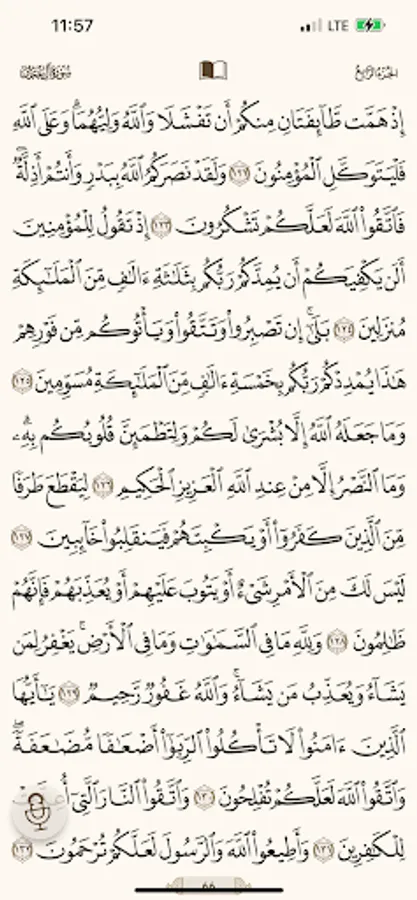 11:57 LTE
سُورَةُ آلِ عِمْرَانَ الجزء الرابع
إِذْ هَمَّت طَّآئِفَتَانِ مِنكُمْ أَن تَفْشَلَا وَٱللَّهُ وَلِيُّهُمَا ۗ وَعَلَى ٱللَّهِ
فَلْيَتَوَكَّلِ ٱلْمُؤْمِنُونَ ١٢٢ وَلَقَدْ نَصَرَكُمُ ٱللَّهُ بِبَدْرٍ وَأَنتُمْ أَذِلَّةٌ ۖ
فَٱتَّقُوا۟ ٱللَّهَ لَعَلَّكُمْ تَشْكُرُونَ ١٢٣ إِذْ تَقُولُ لِلْمُؤْمِنِينَ
أَلَن يَكْفِيَكُمْ أَن يُمِدَّكُمْ رَبُّكُم بِثَلَٰثَةِ ءَالَٰفٍ مِّنَ ٱلْمَلَٰٓئِكَةِ
مُنزَلِينَ ١٢٤ بَلَىٰٓ ۚ إِن تَصْبِرُوا۟ وَتَتَّقُوا۟ وَيَأْتُوكُم مِّن فَوْرِهِمْ
هَٰذَا يُمْدِدْكُمْ رَبُّكُم بِخَمْسَةِ ءَالَٰفٍ مِّنَ ٱلْمَلَٰٓئِكَةِ مُسَوِّمِينَ ١٢٥
وَمَا جَعَلَهُ ٱللَّهُ إِلَّا بُشْرَىٰ لَكُمْ وَلِتَطْمَئِنَّ قُلُوبُكُم بِهِۦ ۗ
وَمَا ٱلنَّصْرُ إِلَّا مِنْ عِندِ ٱللَّهِ ٱلْعَزِيزِ ٱلْحَكِيمِ ١٢٦ لِيَقْطَعَ طَرَفًا
مِّنَ ٱلَّذِينَ كَفَرُوٓا۟ أَوْ يَكْبِتَهُمْ فَيَنقَلِبُوا۟ خَآئِبِينَ ١٢٧
لَيْسَ لَكَ مِنَ ٱلْأَمْرِ شَىْءٌ أَوْ يَتُوبَ عَلَيْهِمْ أَوْ يُعَذِّبَهُمْ فَإِنَّهُمْ
ظَٰلِمُونَ ١٢٨ وَلِلَّهِ مَا فِى ٱلسَّمَٰوَٰتِ وَمَا فِى ٱلْأَرْضِ ۚ يَغْفِرُ لِمَن
يَشَآءُ وَيُعَذِّبُ مَن يَشَآءُ ۚ وَٱللَّهُ غَفُورٌ رَّحِيمٌ ١٢٩ يَٰٓأَيُّهَا
ٱلَّذِينَ ءَامَنُوا۟ لَا تَأْكُلُوا۟ ٱلرِّبَوٰٓا۟ أَضْعَٰفًا مُّضَٰعَفَةً ۖ
وَٱتَّقُوا۟ ٱللَّهَ لَعَلَّكُمْ تُفْلِحُونَ ١٣٠ وَٱتَّقُوا۟ ٱلنَّارَ ٱلَّتِىٓ
لِلْكَٰفِرِينَ ١٣١ وَأَطِيعُوا۟ ٱللَّهَ وَٱلرَّسُولَ لَعَلَّكُمْ تُرْحَمُونَ ١٣٢
٦٦